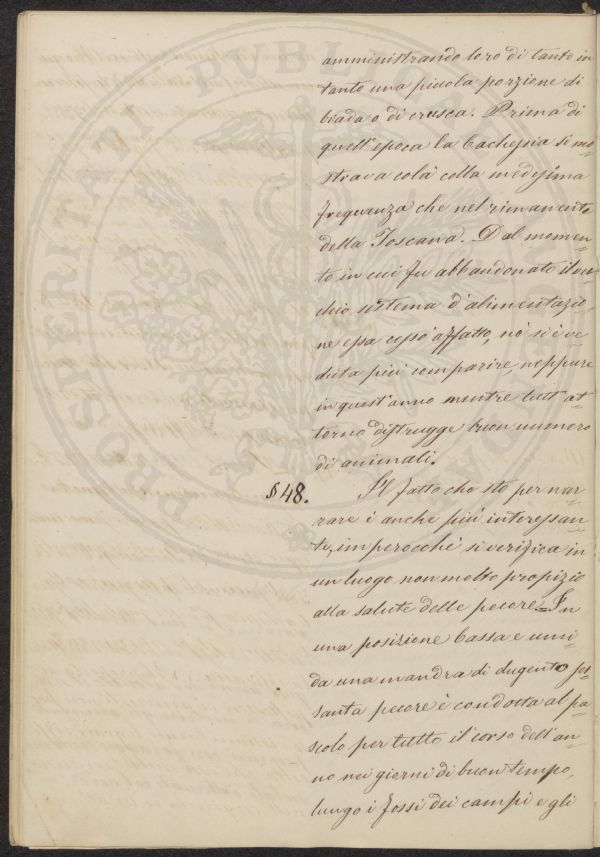 amministrando loro di tanto in
tanto una piccola porzione di
biada o di crusca. Prima di
quell'epoca la Cachessia si mo=
strava colà colla medesima
frequenza che nel rimanente
della Toscana. Dal momen=
to in cui fu abbandonato il vec=
chio sistema d'alimentazio=
ne essa cessò affatto, nè si è ve=
duta più comparire, neppure
in quest'anno mentre tutt'at=
torno distrugge buon numero
di animali.
§ 48. Il fatto che sto per nar=
rare è anche più interessan=
te, imperocchè si verifica in
un luogo non molto propizio
alla salute delle pecore = In
una posizione bassa e umi=
da una mandra di dugento ses=
santa pecore è condotta al pa=
scolo per tutto il corso dell'an=
no nei giorni di buon tempo,
lungo i fossi dei campi e gli
PROSPERITATI PVBLICAE